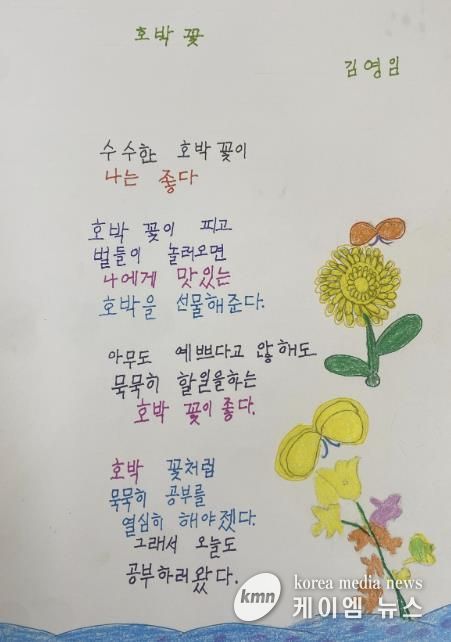 호박 꽃
김영임
수수한 호박 꽃이
나는 좋다
호박 꽃이 피고
벌들이 놀러오면
나에게 맛있는
호박을 선물해준다.
아무도 예쁘다고 않해도
묵묵히 할일을하는
호박 꽃이 좋다.
호박 꽃처럼
묵묵히 공부를
열심히 해야겠다.
그래서 오늘도
공부하러 왔다.
kmn korea media news
케이엠 뉴스